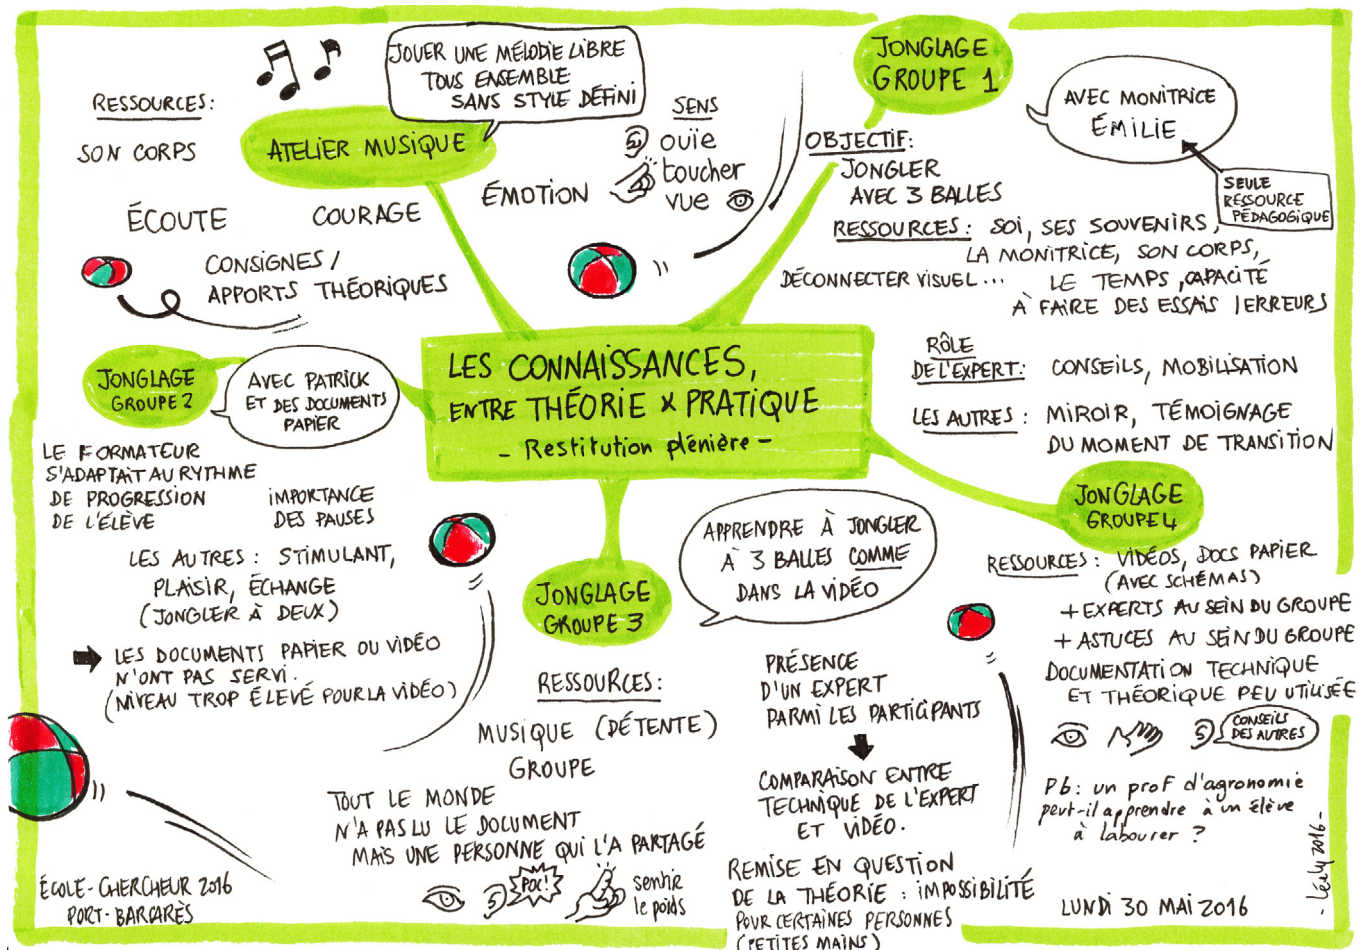 LES CONNAISSANCES,
ENTRE THÉORIE & PRATIQUE
- Restitution plénière -
ATELIER MUSIQUE
JOUER UNE MÉLODIE LIBRE
TOUS ENSEMBLE
SANS STYLE DÉFINI
RESSOURCES:
SON CORPS
ÉCOUTE
COURAGE
ÉMOTION
SENS
ouïe
toucher
vue
CONSIGNES /
APPORTS THÉORIQUES
JONGLAGE
GROUPE 1
AVEC MONITRICE
ÉMILIE
SEULE
RESSOURCE
PÉDAGOGIQUE
OBJECTIF:
JONGLER
AVEC 3 BALLES
RESSOURCES: SOI, SES SOUVENIRS,
LA MONITRICE, SON CORPS,
DÉCONNECTER VISUEL... LE TEMPS, CAPACITÉ
À FAIRE DES ESSAIS / ERREURS
RÔLE
DE L'EXPERT: CONSEILS, MOBILISATION
LES AUTRES: MIROIR, TÉMOIGNAGE
DU MOMENT DE TRANSITION
JONGLAGE
GROUPE 2
AVEC PATRICK
ET DES DOCUMENTS
PAPIER
LE FORMATEUR
S'ADAPTAIT AU RYTHME
DE PROGRESSION
DE L'ÉLÈVE
IMPORTANCE
DES PAUSES
LES AUTRES: STIMULANT,
PLAISIR, ÉCHANGE
(JONGLER À DEUX)
LES DOCUMENTS PAPIER OU VIDÉO
N'ONT PAS SERVI.
(NIVEAU TROP ÉLEVÉ POUR LA VIDÉO)
JONGLAGE
GROUPE 3
APPRENDRE À JONGLER
À 3 BALLES COMME
DANS LA VIDÉO
RESSOURCES:
MUSIQUE (DÉTENTE)
GROUPE
TOUT LE MONDE
N'A PAS LU LE DOCUMENT
MAIS UNE PERSONNE QUI L'A PARTAGÉ
POC!
sentir
le poids
PRÉSENCE
D'UN EXPERT
PARMI LES PARTICIPANTS
COMPARAISON ENTRE
TECHNIQUE DE L'EXPERT
ET VIDÉO.
REMISE EN QUESTION
DE LA THÉORIE: IMPOSSIBILITÉ
POUR CERTAINES PERSONNES
(PETITES MAINS)
JONGLAGE
GROUPE 4
RESSOURCES: VIDÉOS, DOCS PAPIER
(AVEC SCHÉMAS)
+ EXPERTS AU SEIN DU GROUPE
+ ASTUCES AU SEIN DU GROUPE
DOCUMENTATION TECHNIQUE
ET THÉORIQUE PEU UTILISÉE
CONSEILS
DES AUTRES
Pb: un prof d'agronomie
peut-il apprendre à un élève
à labourer ?
ÉCOLE-CHERCHEUR 2016
PORT-BARCARÈS
LUNDI 30 MAI 2016